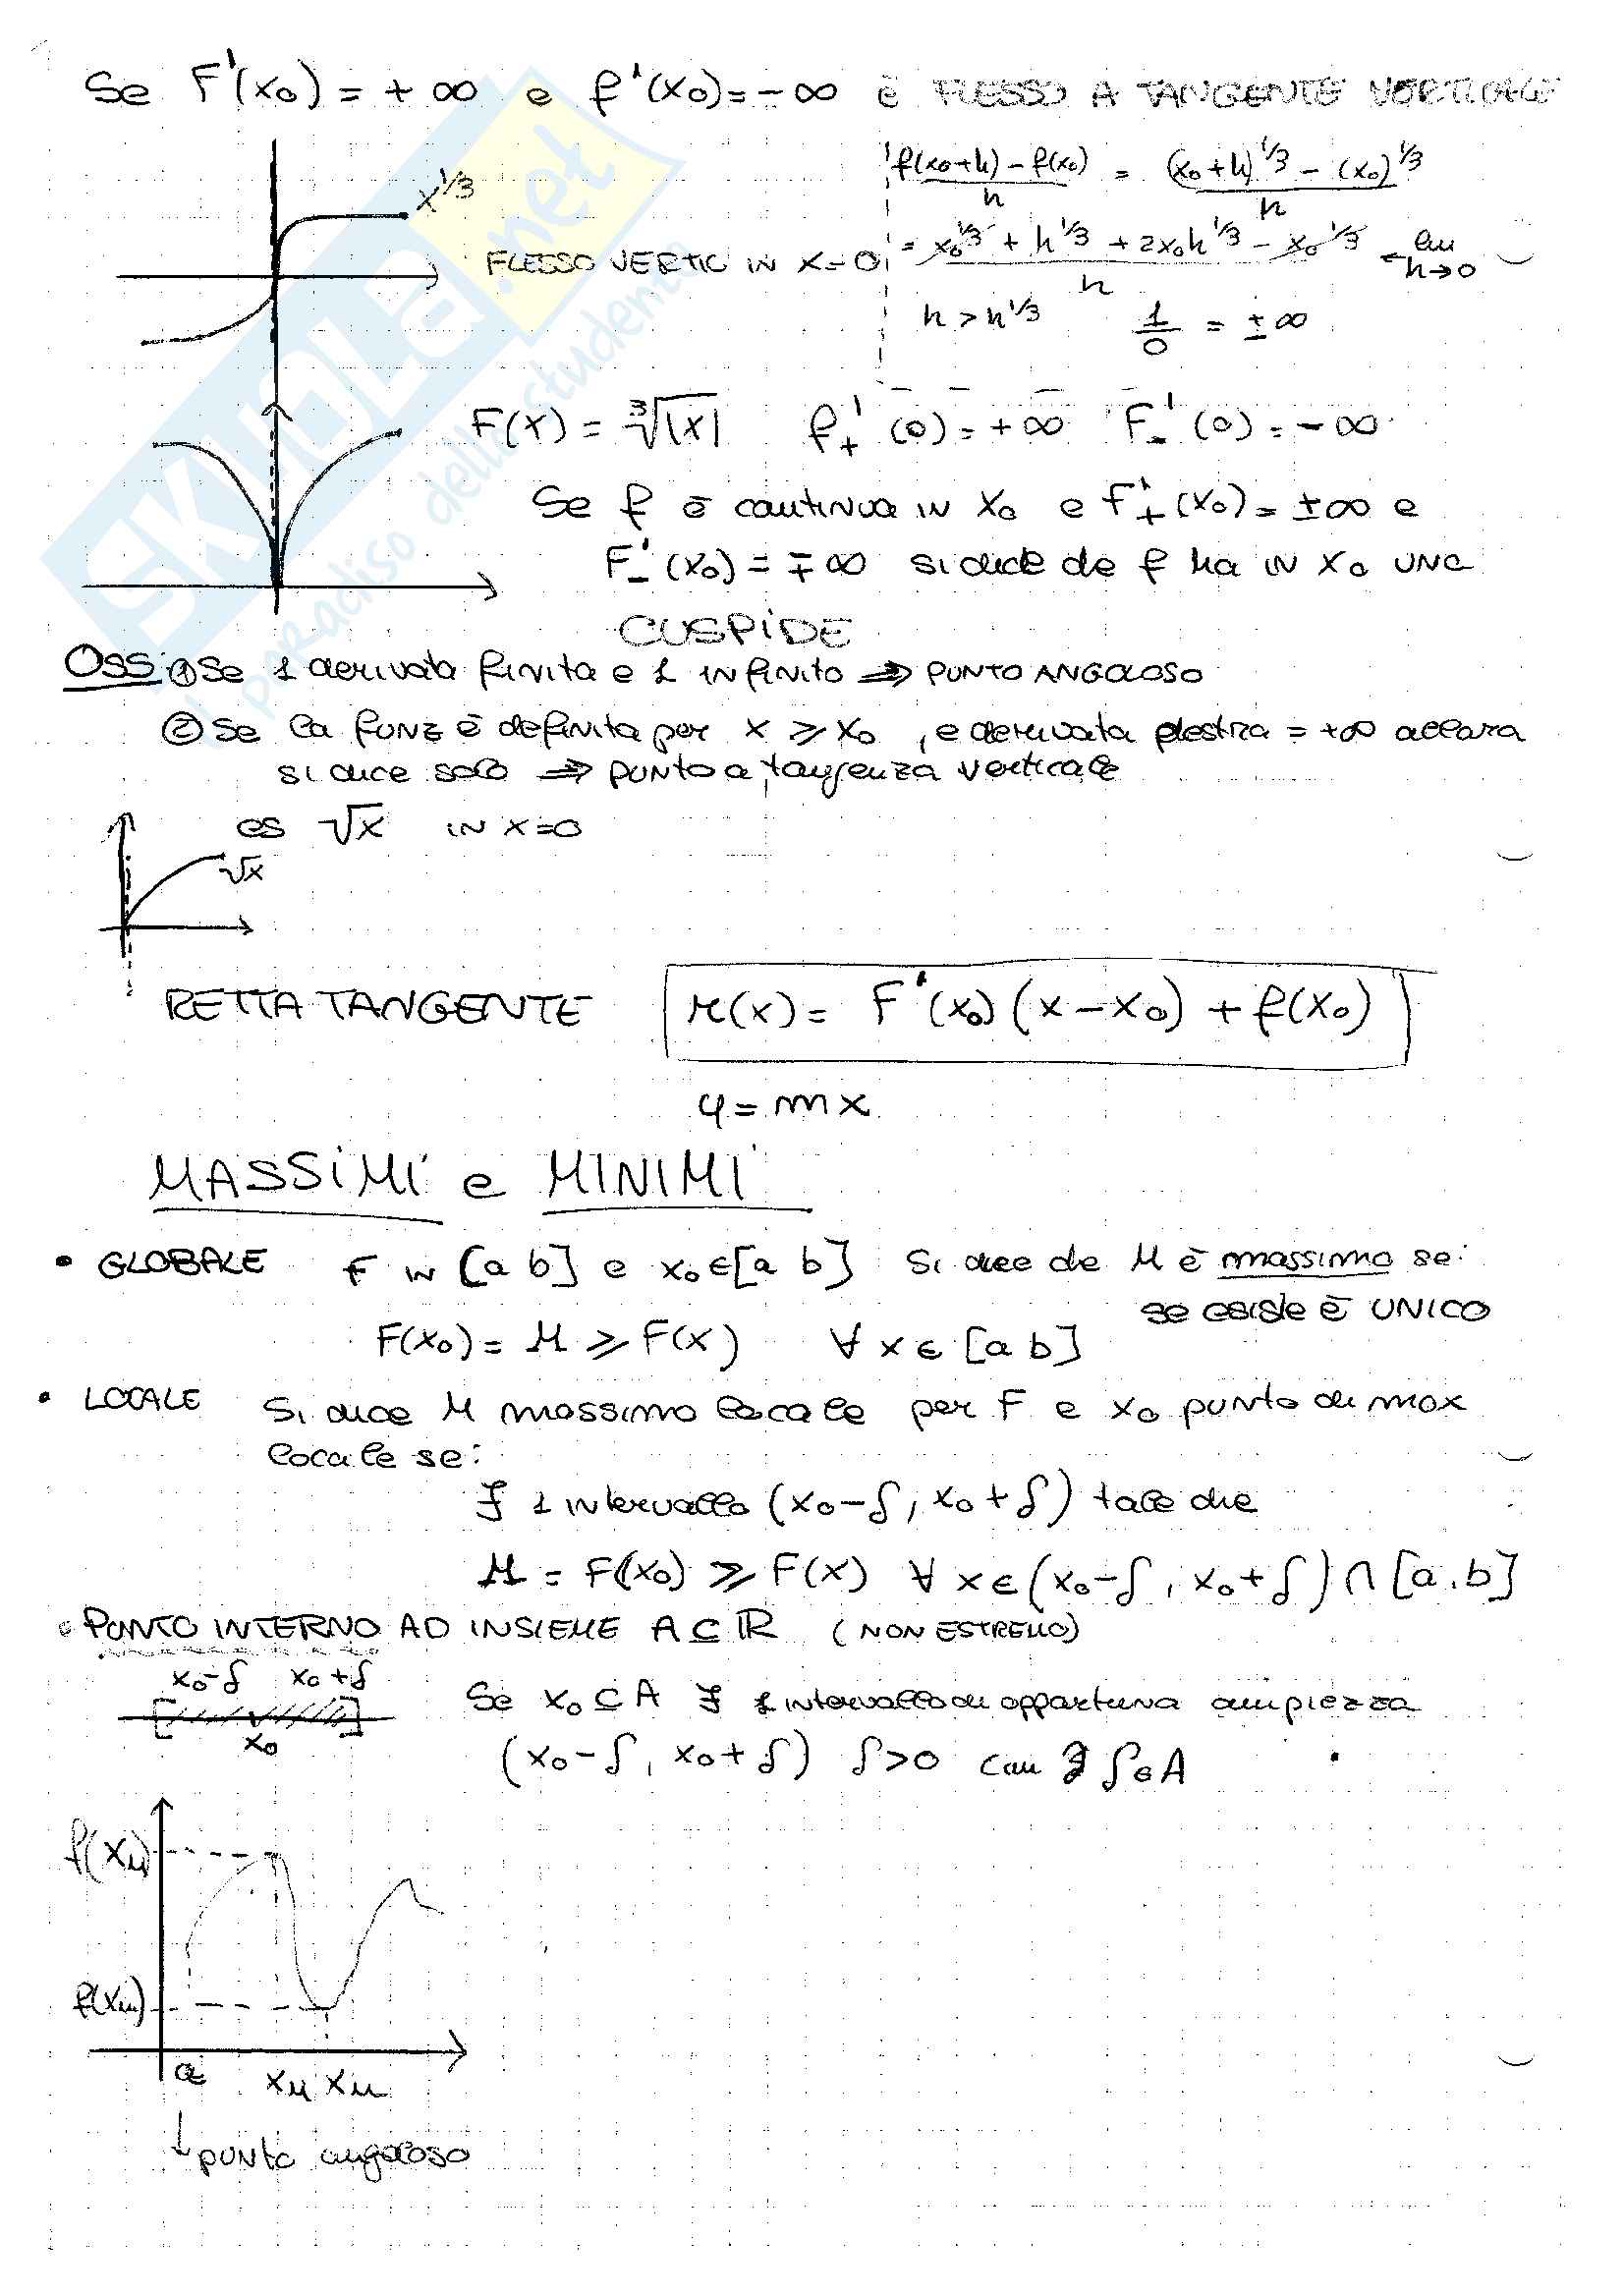 Se F'(x₀) = +∞ e f'(x₀) = -∞ è FLESSO A TANGENTE VERTICALE
x^1/3
(f(x₀+h) - f(x₀))/h = ((x₀+h)^1/3 - (x₀)^1/3)/h
FLESSO VERTIC IN x=0
= (x₀^1/3 + h^1/3 + 2x₀h^1/3 - x₀^1/3)/h ← lim h→0
h > h^1/3 1/0 = ±∞
F(x) = ∛|x| f₊'(0) = +∞ F₋'(0) = -∞
Se f è continua in x₀ e F₊'(x₀) = ±∞ e
F₋'(x₀) = ∓∞ si dice che f ha in x₀ una
CUSPIDE
OSS: ① Se 1 derivata finita e 1 infinito ⇒ PUNTO ANGOLOSO
② Se la funz è definita per x ⩾ x₀, e derivata destra = +∞ allora
si dice solo ⇒ punto a tangenza verticale
es √x in x=0
√x
RETTA TANGENTE r(x) = F'(x₀)(x-x₀) + f(x₀)
y = mx
MASSIMI e MINIMI
• GLOBALE F in [a b] e x₀∈[a b] Si dice che M è massimo se:
se esiste è UNICO
F(x₀) = M ⩾ F(x) ∀ x ∈ [a b]
• LOCALE Si dice M massimo locale per F e x₀ punto di max
locale se:
∃ 1 intervallo (x₀-δ, x₀+δ) tale che
M = F(x₀) ⩾ F(x) ∀ x∈(x₀-δ, x₀+δ) ∩ [a, b]
• PUNTO INTERNO AD INSIEME A ⊆ ℝ (NON ESTREMO)
x₀-δ x₀+δ
x₀
Se x₀ ⊆ A ∃ 1 intervallo di opportuna ampiezza
(x₀-δ, x₀+δ) δ>0 con ∃ δ∈A
f(xM)
f(xm)
a xM xm
↓ punto angoloso
SKUOLA.net
il paradiso dello studente